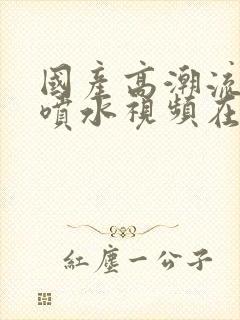 國產高潮流
噴水視頻在
紅塵一公子